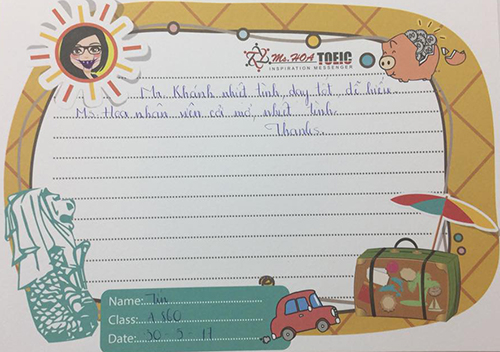 Ms. HOA TOEIC
INSPIRATION MESSENGER
Mr. Khánh nhiệt tình, dạy tốt, dễ hiểu.
Ms. Hoa nhân viên cởi mở, nhiệt tình.
Thanks.
Name:
Class: A
Date: 30 - 5 - 17